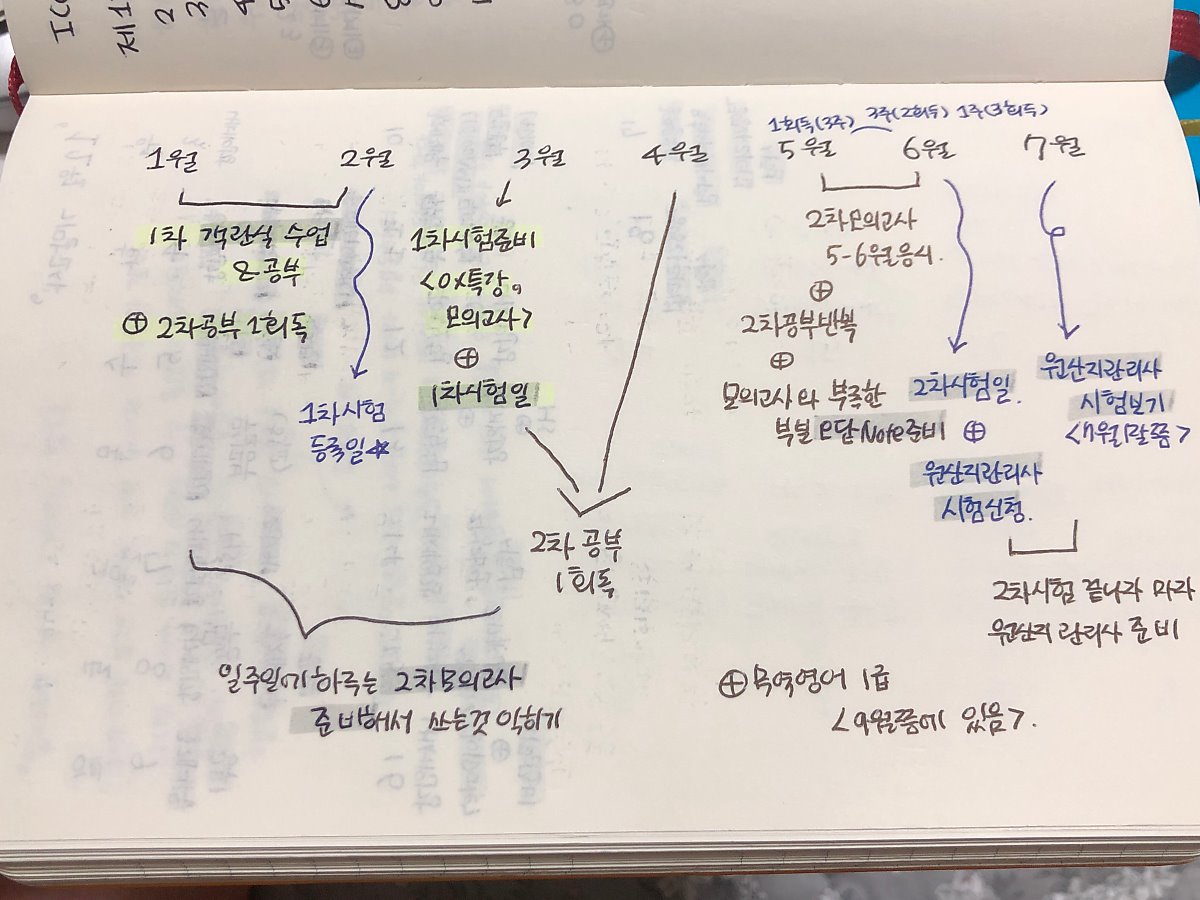 제1
1회독(3주) 3주(2회독) 1주(3회독)
1월 2월 3월 4월 5월 6월 7월
1차 객관식 수업
& 공부
⊕ 2차공부 1회독
1차시험
등록일☆
1차시험준비
<OX특강,
모의고사>
⊕
1차시험일
2차 공부
1회독
2차모의고사
5-6월응시.
⊕
2차공부반복
⊕
모의고사와 부족한
부분 오답Note준비
2차시험일.
⊕
원산지관리사
시험신청.
원산지관리사
시험보기
<7월말쯤>
2차시험 끝나자 마자
원산지 관리사 준비
일주일에하루는 2차모의고사
준비해서 쓰는것 익히기
⊕ 무역영어 1급
<9월쯤에 있음>.